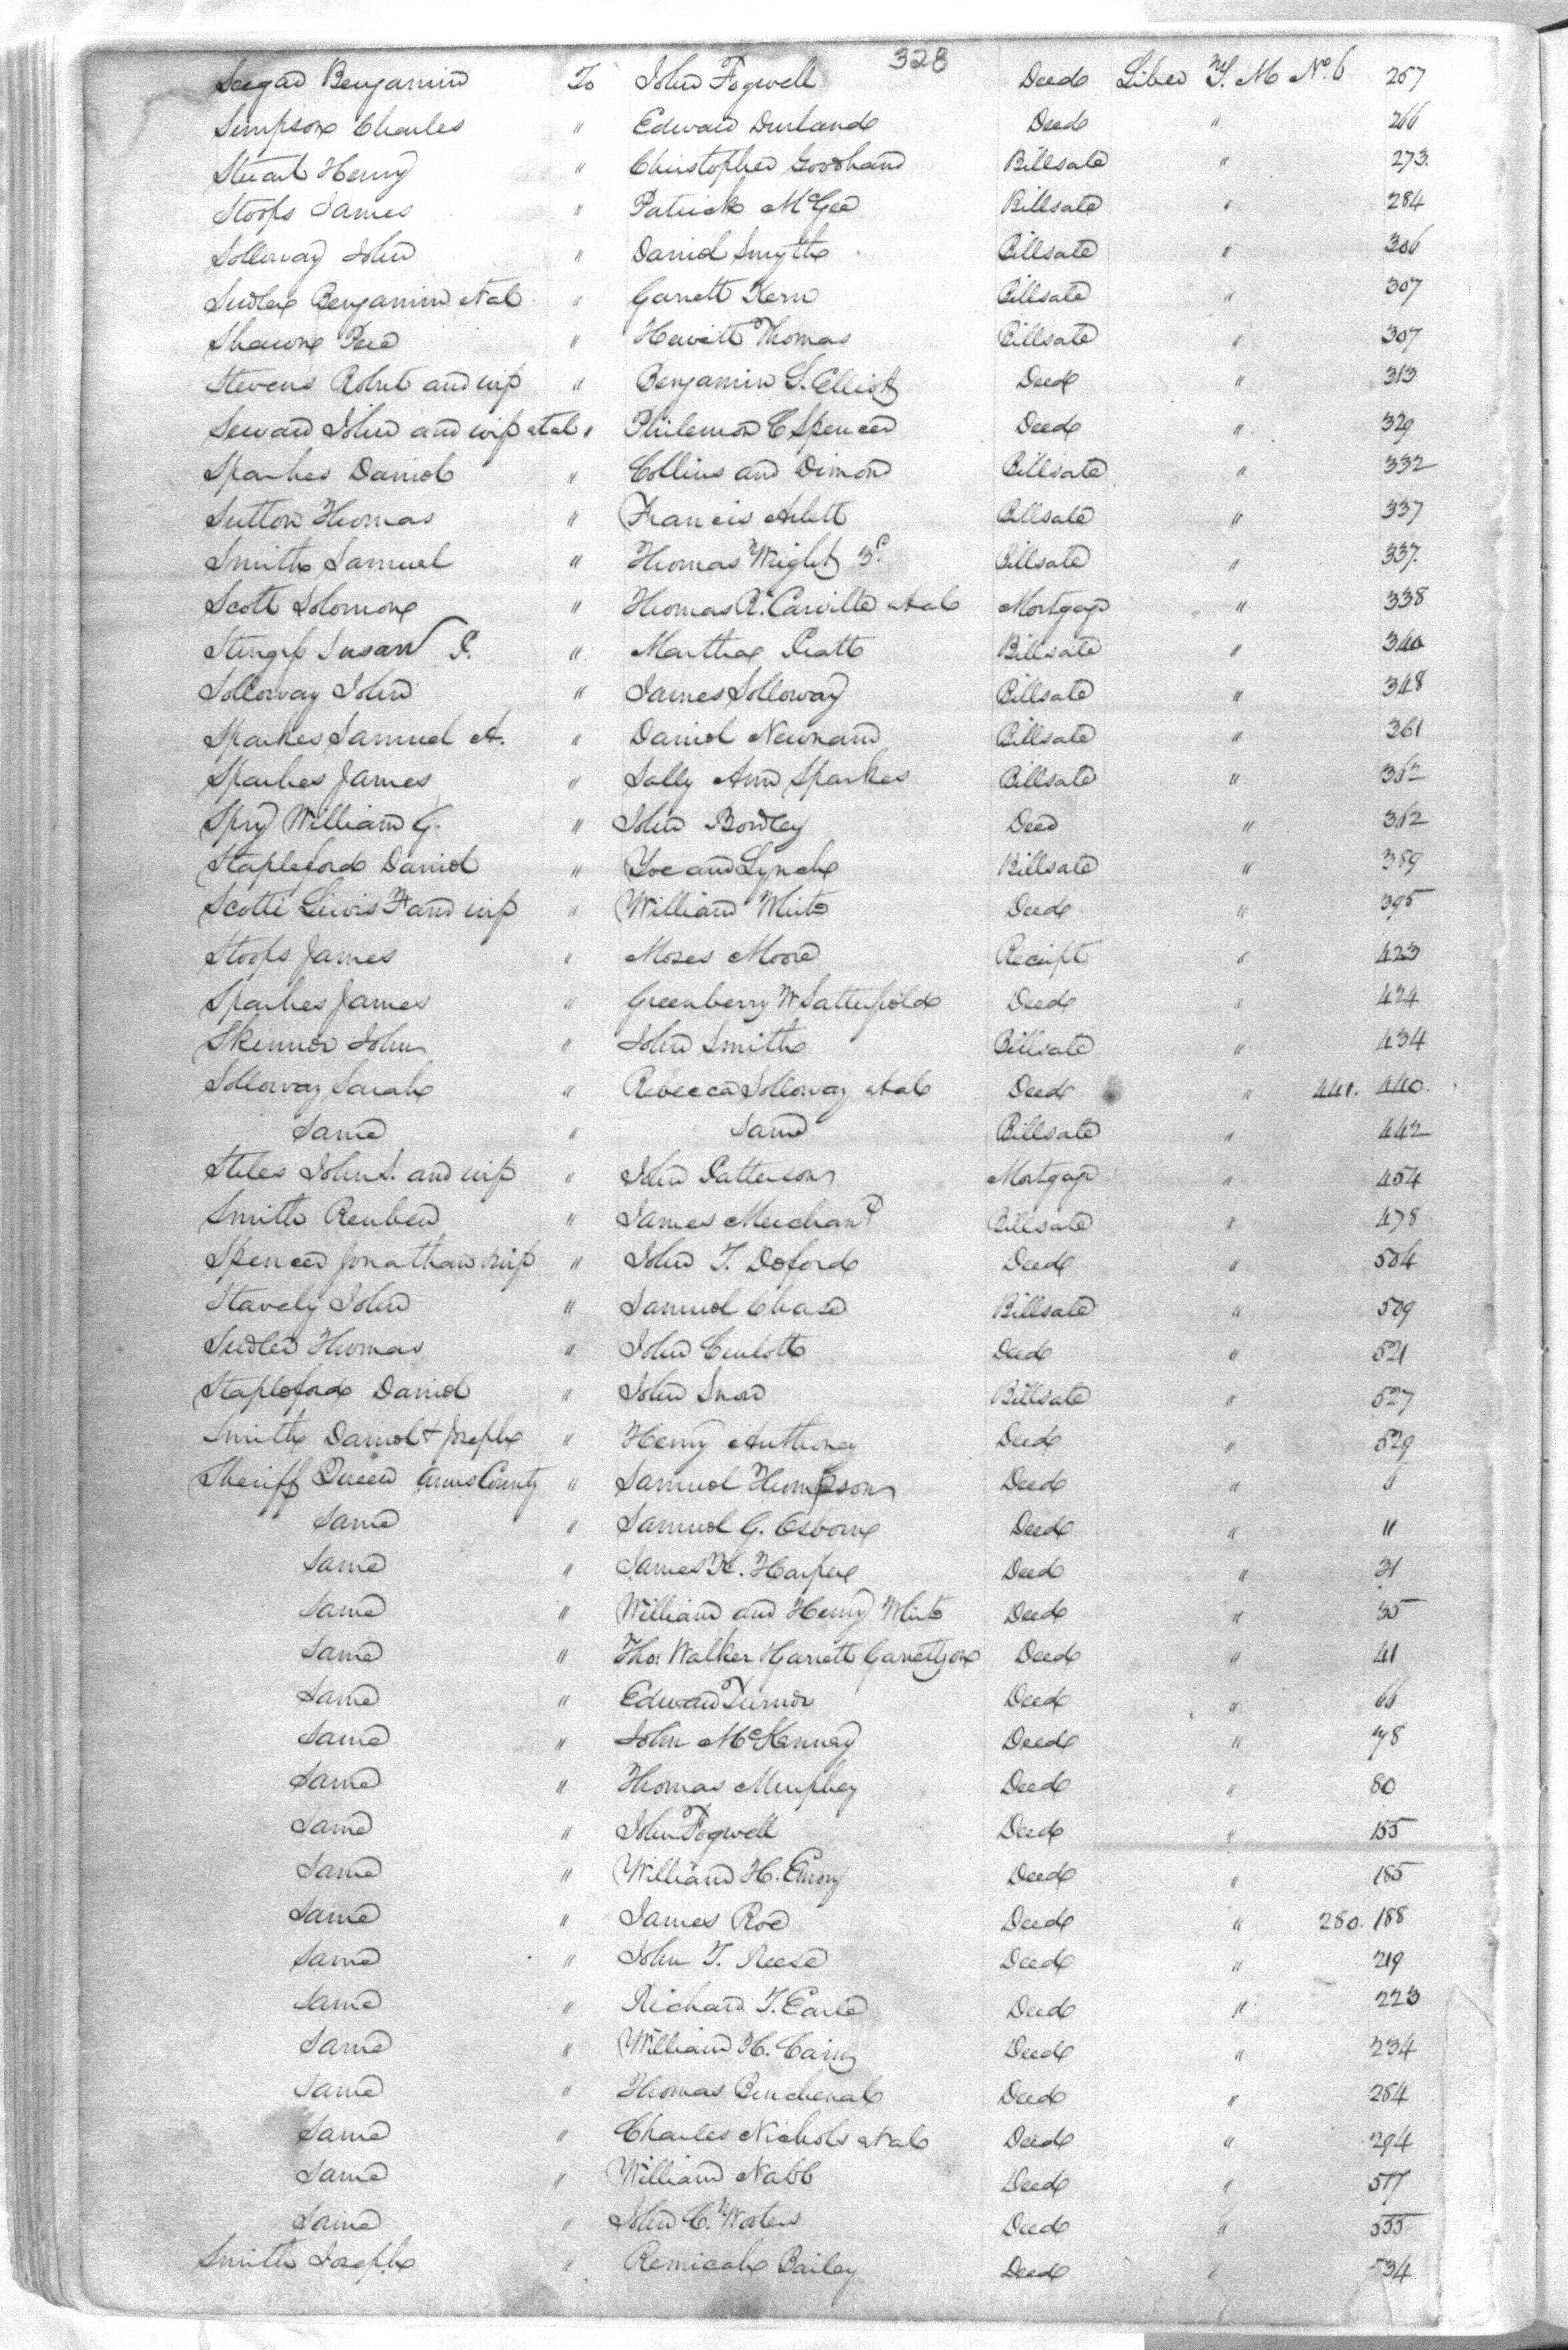 328
Seegar Benjamin To John Fogwell Deed Liber T. M No. 6 257
Simpson Charles " Edward Durland Deed " 266
Stuart Henry " Christopher Goodhand Billsale " 273.
Stoops James " Patrick McGee Billsale " 284
Solloway John " Daniel Smyth Billsale " 306
Sudler Benjamin et al " Garrett Kern Billsale " 307
Shawn Pere " Hewitt Thomas Billsale " 307
Stevens Robert and wife " Benjamin S. Elliott Deed " 313
Seward John and wife et al " Philemon C Spencer Deed " 329
Sparkes Daniel " Collins and Dimond Billsale " 332
Sutton Thomas " Francis Arlett Billsale " 337
Smith Samuel " Thomas Wright 3d. Billsale " 337.
Scott Solomon " Thomas R. Carville et al Mortgage " 338
Susan P. " Martha Pratt Billsale " 340
Solloway John " James Solloway Billsale " 348
Sparkes Samuel A. " Daniel Newnam Billsale " 361
Sparkes James " Sally Ann Sparkes Billsale " 362
Spry William G. " John Bordley Deed " 362
Stapleford Daniel " Yoe and Lynch Billsale " 389
Scotti Lewis F and wife " William White Deed " 395
Stoops James " Moses Moore Receipt " 423
Sparkes James " Greenberry W Satterfield Deed " 424
Skinner John " John Smith Billsale " 434
Solloway Sarah " Rebecca Solloway et al Deed " 441. 440.
Same " Same Billsale " 442
Stiles John S. and wife " John Patterson Mortgage " 454
Smith Reuben " James Merchant Billsale " 478
Spencer Jonathan & wife " John T. Doford Deed " 504
Stavely John " Samuel Chase Billsale " 509
Sudler Thomas " John Deed " 521
Stapleford Daniel " John Snow Billsale " 527
Smith Daniel & Joseph " Henry Anthoney Deed " 529
Sheriff Queen Anns County " Samuel Thompson Deed " 6
Same " Samuel G. Osborne Deed " 11
Same " James H. Harper Deed " 31
Same " William and Henry White Deed " 35
Same " Tho. Walker Garrett Garrettson Deed " 41
Same " Edward Turner Deed " 66
Same " John McKenney Deed " 78
Same " Thomas Murphey Deed " 80
Same " John Fogwell Deed " 155
Same " William H. Emory Deed " 185
Same " James Roe Deed " 280. 188
Same " John T. Reese Deed " 219
Same " Richard T. Earle Deed " 223
Same " William H. Deed " 234
Same " Thomas Burchenal Deed " 284
Same " Charles Nichols et al Deed " 294
Same " William Nabb Deed " 517
Same " John C. Wooters Deed " 555
Smith Joseph " Bailey Deed " 534